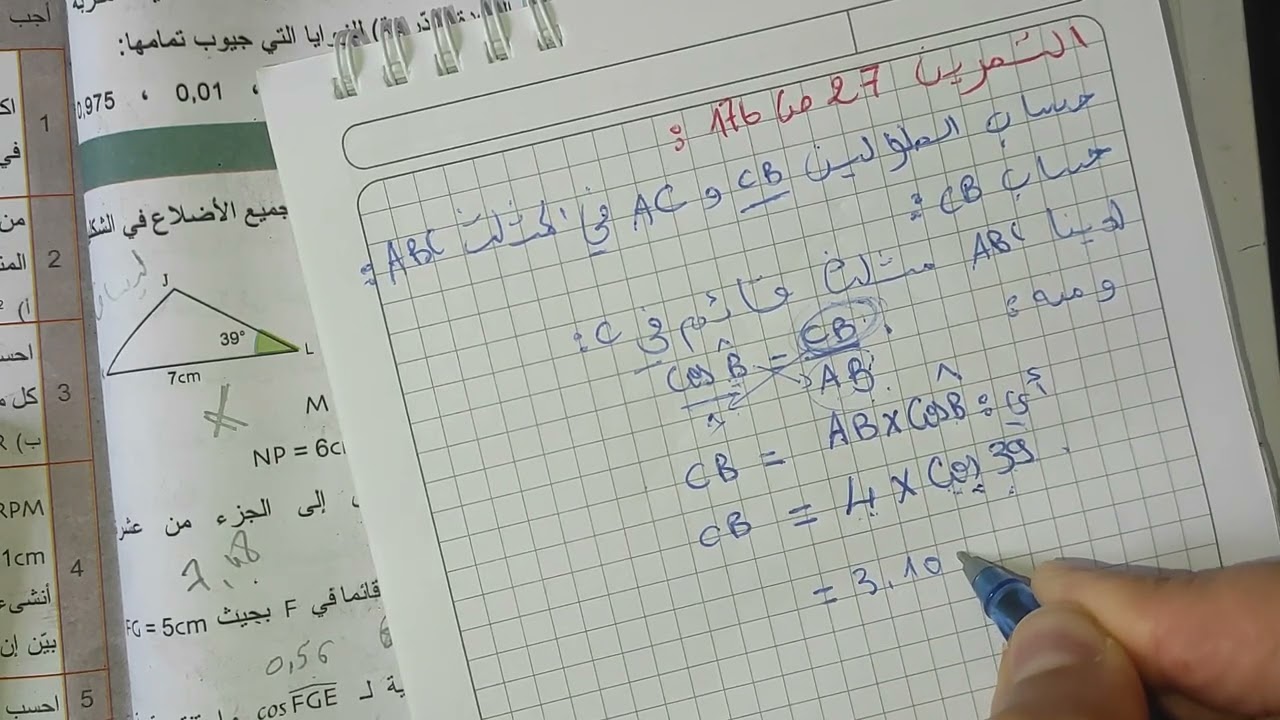 التمرين 27 ص 176 :
حساب الطولين CB و AC في المثلث ABC :
حساب CB :
لدينا ABC مثلث قائم في C :
ومنه :
cos B̂ = CB / AB
CB = AB × cos B̂
CB = 4 × cos 39
= 3.10
التي جيوب تمامها:
0,975 ، 0,01 ،
جميع الأضلاع في الشكل
J
39°
L
7cm
M
NP = 6c
إلى الجزء من عشر
قائما في F بجيث FG = 5cm
0,56
cos FGE
أجب
1
في
من
2
المث
أ)
احس
3
كل م
ب)
RPM
1cm
4
أنشىء
بيّن إن
5
احسب